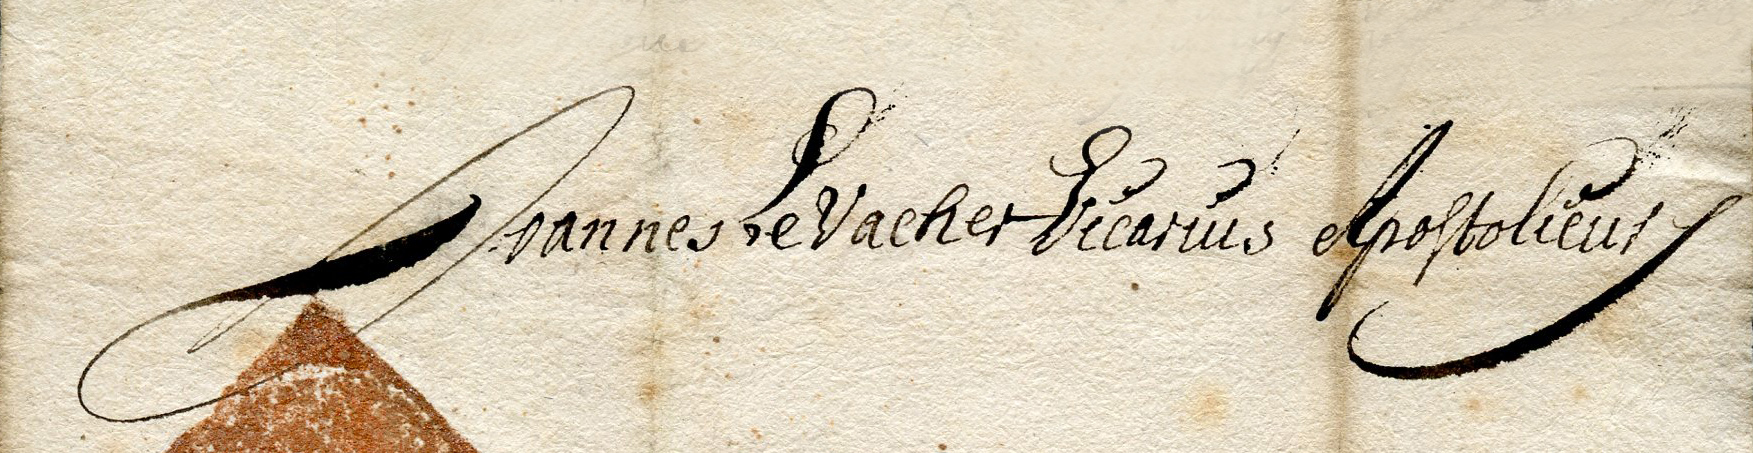 Joannes Le Vacher Vicarius Apostolicus